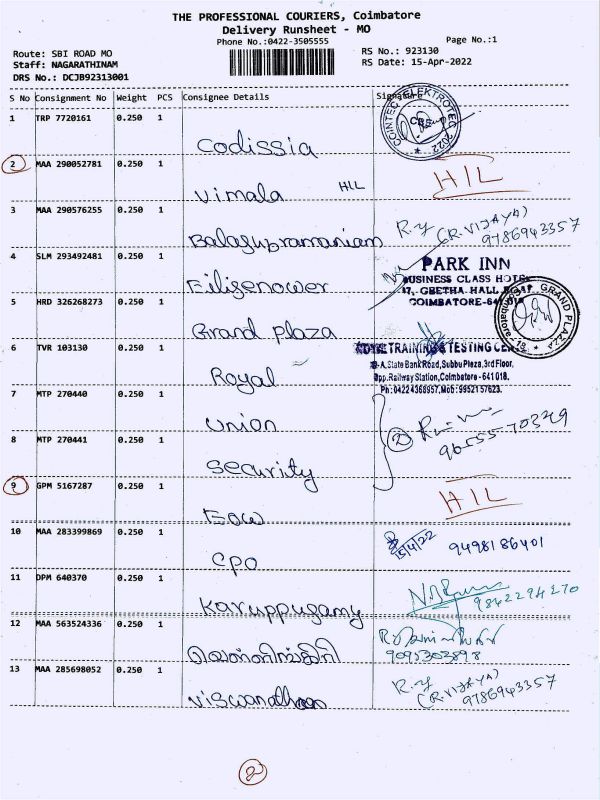 THE PROFESSIONAL COURIERS, Coimbatore
Delivery Runsheet - MO
Phone No.:0422-3505555
Page No.:1
Route: SBI ROAD MO
Staff: NAGARATHINAM
DRS No.: DCJB92313001
RS No.: 923130
RS Date: 15-Apr-2022
S No Consignment No Weight PCS Consignee Details Signature
COINTEC ELEKTROTEC 2022
CBE
1 TRP 7720161 0.250 1
Codissia
2 MAA 290052781 0.250 1
Vimala HIL
HIL
3 MAA 290576255 0.250 1
Balasubramaniam
R.Y (R.VIJAYA)
9786943357
4 SLM 293492481 0.250 1
PARK INN
BUSINESS CLASS HOTEL
GEETHA HALL ROAD
COIMBATORE-641 018
5 HRD 326268273 0.250 1
Grand plaza
GRAND PLAZA
6 TVR 103130 0.250 1
Royal
TRAINING & TESTING
State Bank Road, Subbu Plaza, 3rd Floor,
Opp. Railway Station, Coimbatore - 641 018.
Ph: 0422 4368957, Mob: 9952157623.
7 MTP 270440 0.250 1
Union
8 MTP 270441 0.250 1
Security
2
96555-70329
9 GPM 5167287 0.250 1
HIL
10 MAA 283399869 0.250 1
CPO
15/4/22 9498186401
11 DPM 640370 0.250 1
Karuppusamy
9842294270
12 MAA 563524336 0.250 1
9095303898
13 MAA 285698052 0.250 1
R.Y
(R.VIJAYA)
9786943357
2